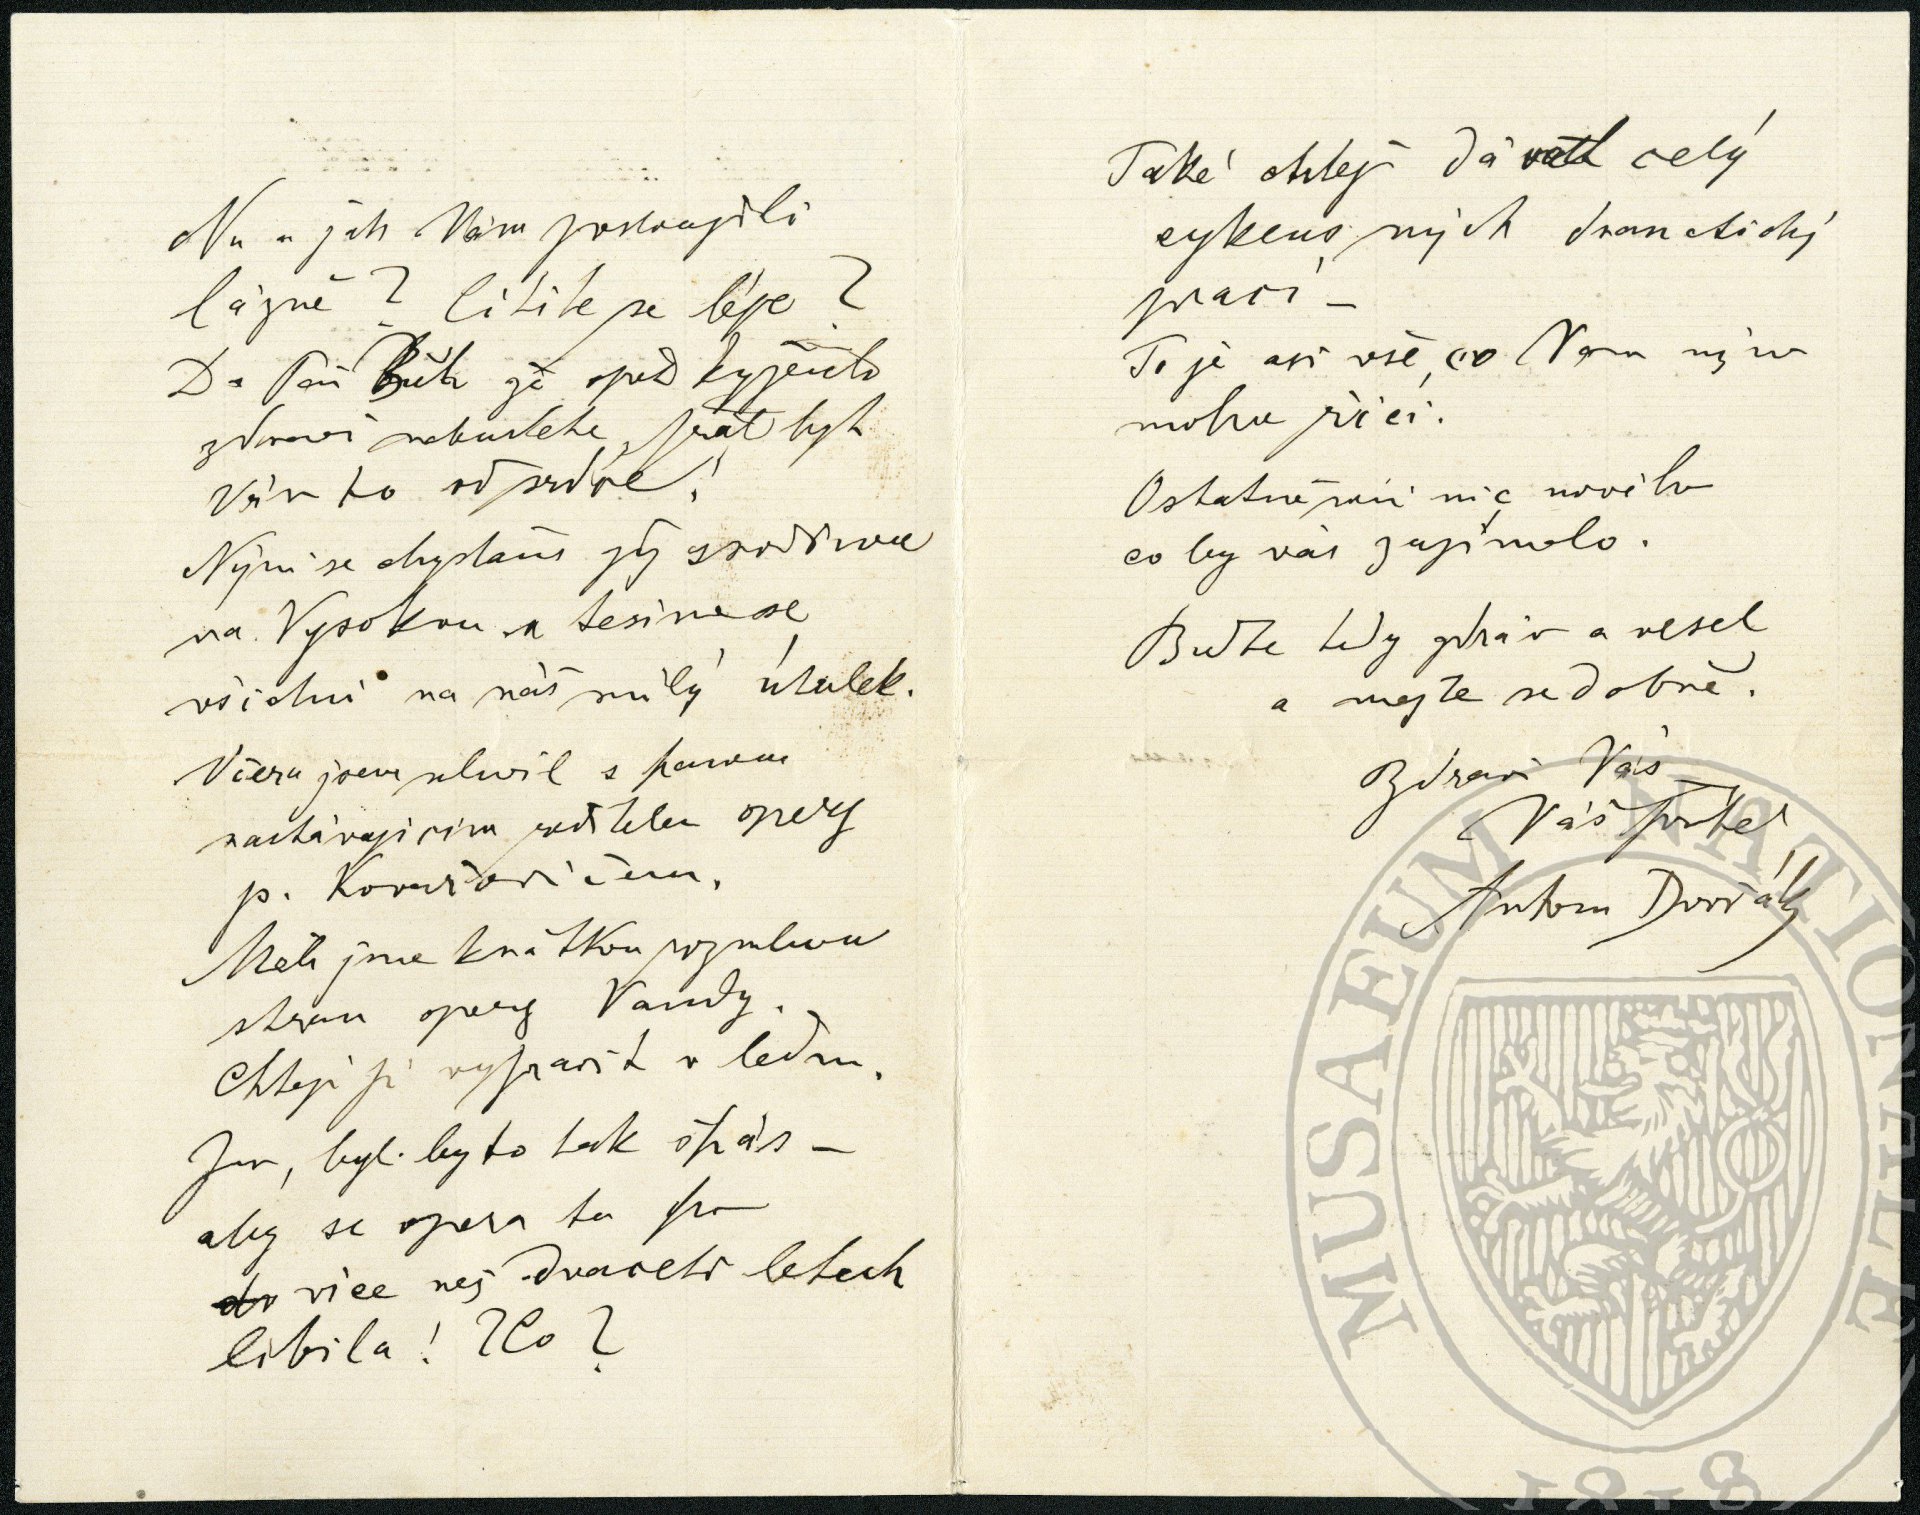 Nu a jak Vám posloužili
lázně? Cítíte se lépe?
Dá Pán Bůh že opět kyženého
zdraví nabudete, přál bych
Vám to od srdce!
Nyní se chystám již s rodinou
na Vysokou a tesíme se
všichni na náš milý útulek.
Včera jsem mluvil s panem
nastávajícím ředitelem opery
p. Kovařovičem.
Měli jsme krátkou rozmluvu
stran opery Vandy.
Chtějí ji vypravit v lednu.
Jen, byl by to tak špás –
aby se opera ta po
více než dvaceti letech
líbila! ? Co?
Také chtějí dávati celý
cyklus mých dramatických
prací –
To je asi vše, co Vam nyní
mohu říci.
Ostatně není nic nového
co by vás zajímalo.
Buďte tedy zdráv a vesel
a mejte se dobře.
Zdraví Vás
Váš přítel
Antonín Dvořák
MUSAEUM NATIONALE
1818